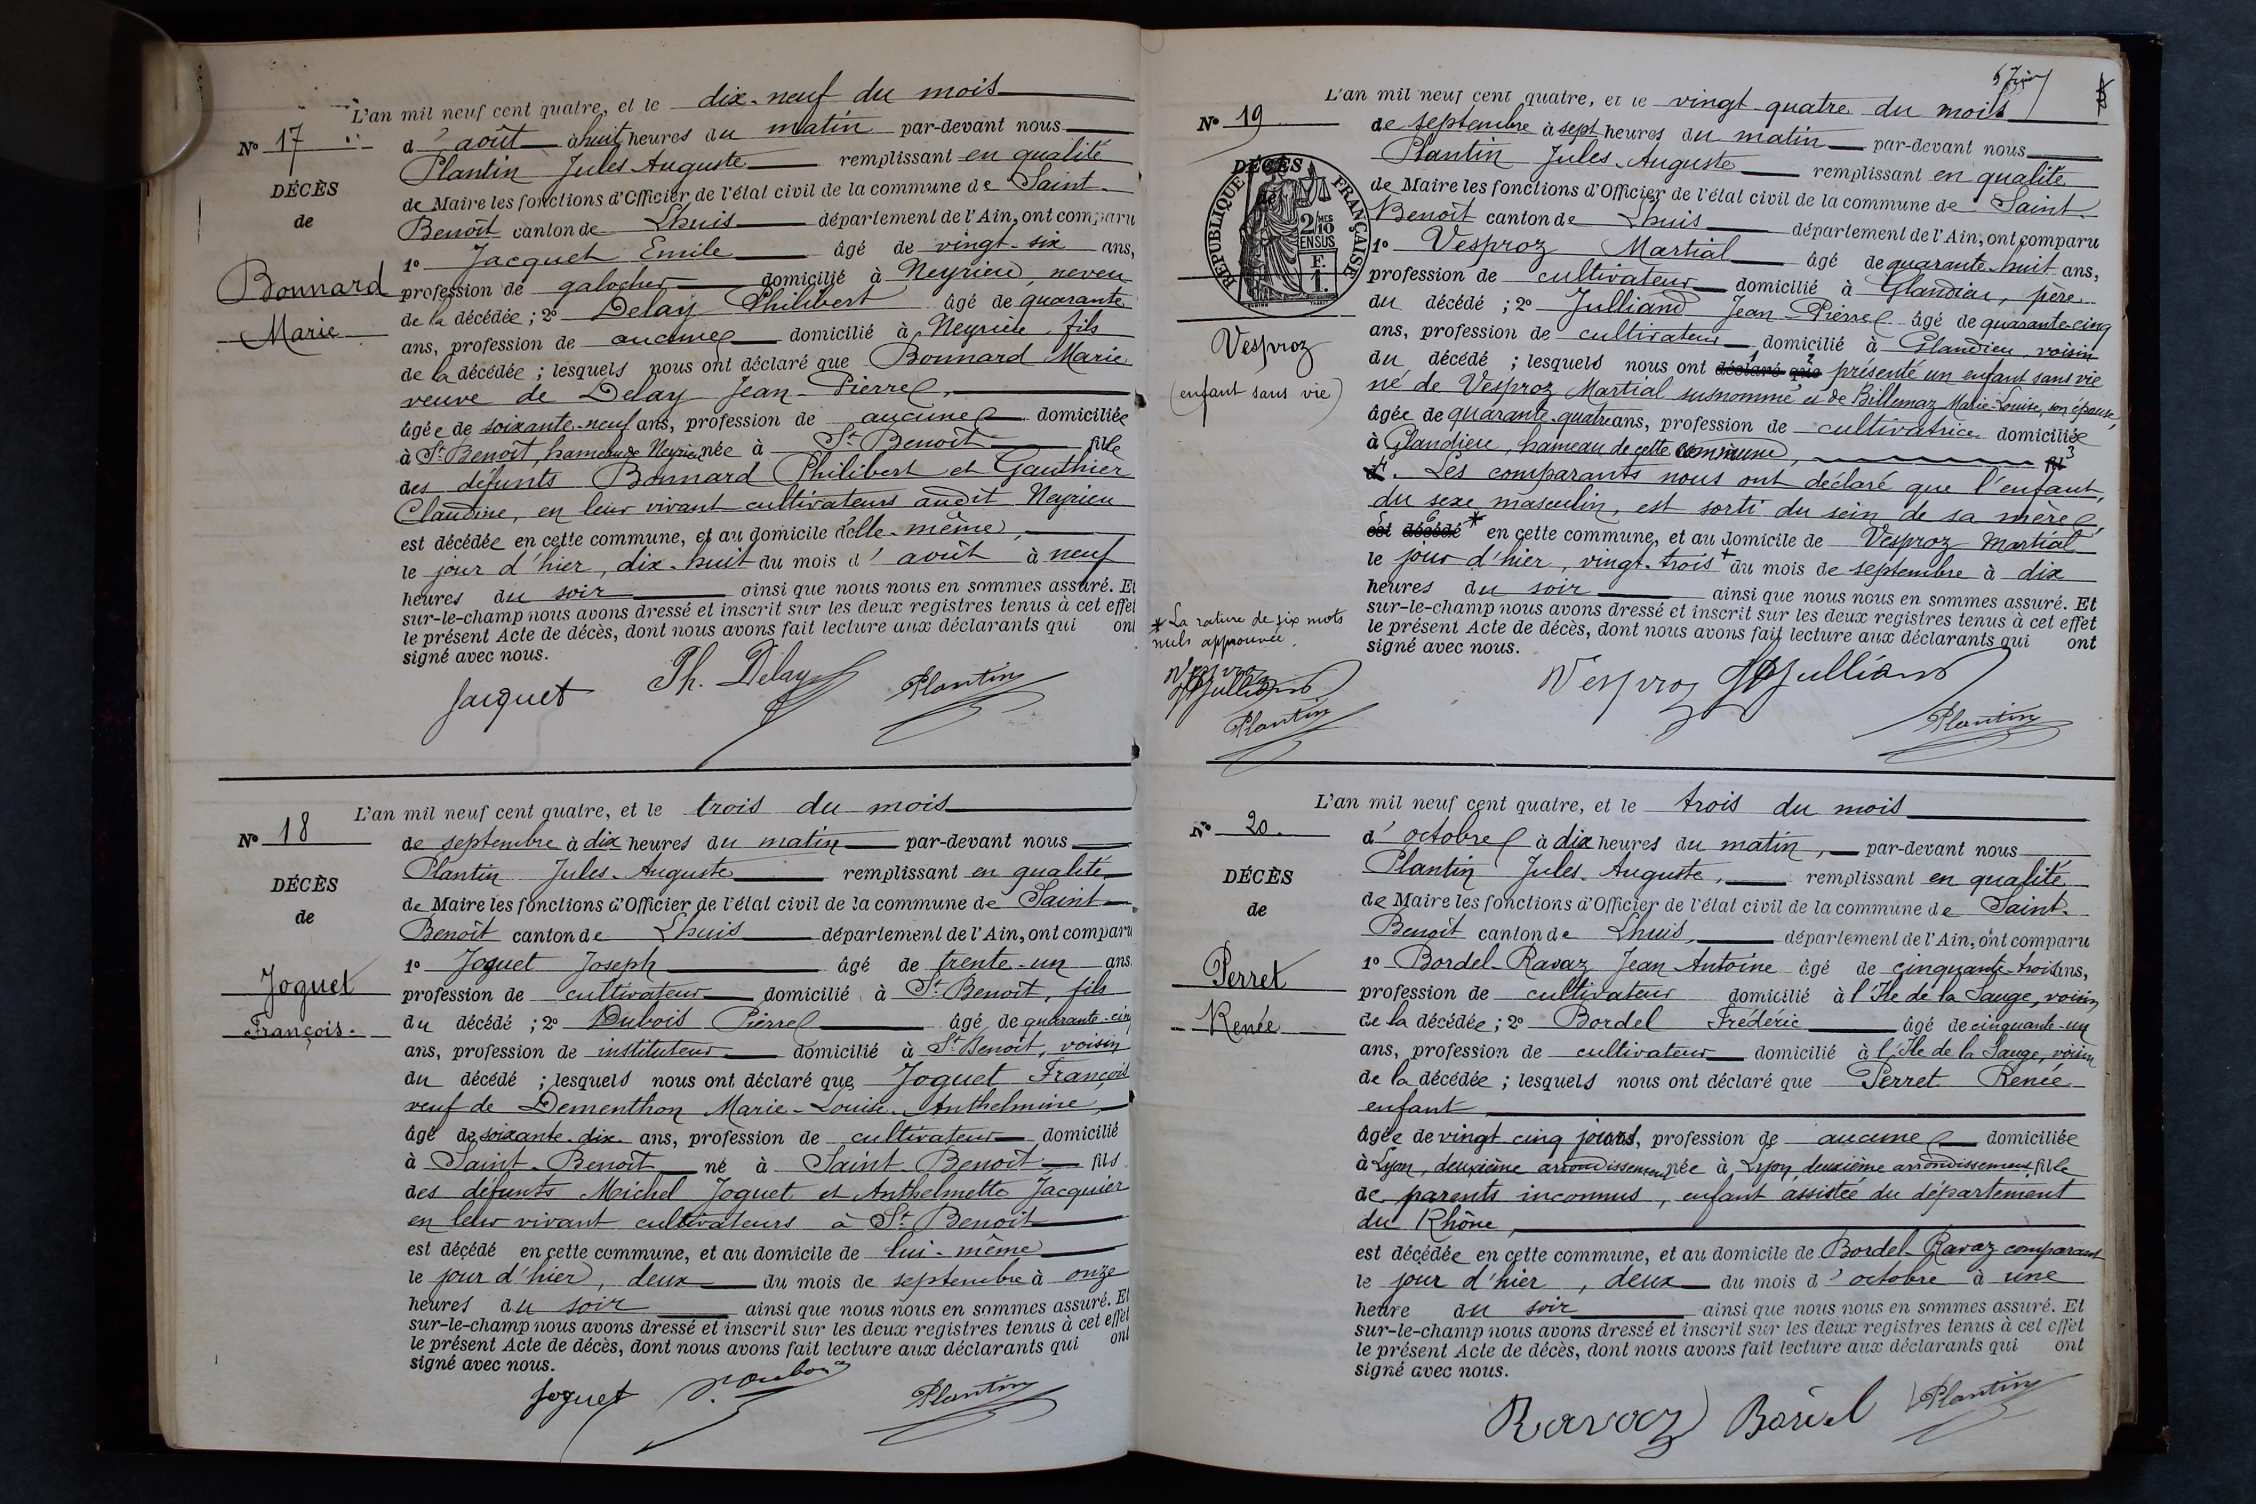 L'an mil neuf cent quatre, et le dix-neuf du mois
N° 17
d'août à huit heures du matin par-devant nous
DÉCÈS
de
Bonnard
Marie
Plantin Jules Auguste remplissant en qualité
de Maire les fonctions d'Officier de l'état civil de la commune de Saint-
Benoît canton de Lhuis département de l'Ain, ont comparu
1° Jacquet Emile âgé de vingt-six ans,
profession de galocher domicilié à Neyrieu, neveu
de la décédée ; 2° Delay Philibert âgé de quarante
ans, profession de aucune domicilié à Neyrieu, fils
de la décédée ; lesquels nous ont déclaré que Bonnard Marie
veuve de Delay Jean-Pierre,
âgée de soixante-neuf ans, profession de aucune domiciliée
à St Benoît, hameau de Neyrieu née à St Benoît fille
des défunts Bonnard Philibert et Gauthier
Claudine, en leur vivant cultivateurs audit Neyrieu
est décédée en cette commune, et au domicile d'elle-même,
le jour d'hier, dix-huit du mois d'août à neuf
heures du soir ainsi que nous nous en sommes assuré. Et
sur-le-champ nous avons dressé et inscrit sur les deux registres tenus à cet effet
le présent Acte de décès, dont nous avons fait lecture aux déclarants qui ont
signé avec nous.
Jacquet Ph. Delay Plantin
L'an mil neuf cent quatre, et le trois du mois
N° 18
DÉCÈS
de
Joguet
François.
de septembre à dix heures du matin par-devant nous
Plantin Jules-Auguste remplissant en qualité
de Maire les fonctions d'Officier de l'état civil de la commune de Saint-
Benoît canton de Lhuis département de l'Ain, ont comparu
1° Joguet Joseph âgé de trente-un ans
profession de cultivateur domicilié à St Benoît, fils
du décédé ; 2° Dubois Pierre âgé de quarante-cinq
ans, profession de instituteur domicilié à St Benoît, voisin
du décédé ; lesquels nous ont déclaré que Joguet François
veuf de Dementhon Marie-Louise-Anthelmine,
âgé de soixante-dix ans, profession de cultivateur domicilié
à Saint-Benoît né à Saint-Benoît fils
des défunts Michel Joguet et Anthelmette Jacquier
en leur vivant cultivateurs à St Benoît
est décédé en cette commune, et au domicile de lui-même
le jour d'hier, deux du mois de septembre à onze
heures du soir ainsi que nous nous en sommes assuré. Et
sur-le-champ nous avons dressé et inscrit sur les deux registres tenus à cet effet
le présent Acte de décès, dont nous avons fait lecture aux déclarants qui ont
signé avec nous.
Joguet P. Dubois Plantin
L'an mil neuf cent quatre, et le vingt-quatre du mois
N° 19
DÉCÈS
de
RÉPUBLIQUE FRANÇAISE
2/10 MES
EN SUS
F.
1.
Vesproz
(enfant sans vie)
de septembre à sept heures du matin par-devant nous
Plantin Jules-Auguste remplissant en qualité
de Maire les fonctions d'Officier de l'état civil de la commune de Saint-
Benoît canton de Lhuis département de l'Ain, ont comparu
1° Vesproz Martial âgé de quarante-huit ans,
profession de cultivateur domicilié à Glandieu, père
du décédé ; 2° Julliand Jean-Pierre âgé de quarante-cinq
ans, profession de cultivateur domicilié à Glandieu, voisin
du décédé ; lesquels nous ont déclaré que présenté un enfant sans vie
né de Vesproz Martial susnommé et de Billemaz Marie-Louise, son épouse,
âgée de quarante-quatre ans, profession de cultivatrice domiciliée
à Glandieu, hameau de cette commune,
Les comparants nous ont déclaré que l'enfant,
du sexe masculin, est sorti du sein de sa mère,
est décédé * en cette commune, et au domicile de Vesproz Martial
le jour d'hier, vingt-trois du mois de septembre à dix
heures du soir ainsi que nous nous en sommes assuré. Et
sur-le-champ nous avons dressé et inscrit sur les deux registres tenus à cet effet
le présent Acte de décès, dont nous avons fait lecture aux déclarants qui ont
signé avec nous.
* La rature de six mots
nuls approuvée.
Vesproz
Julliand
Plantin
Vesproz Julliand
Plantin
L'an mil neuf cent quatre, et le trois du mois
N° 20.
DÉCÈS
de
Perret
Renée
d'octobre à dix heures du matin, par-devant nous
Plantin Jules-Auguste, remplissant en qualité
de Maire les fonctions d'Officier de l'état civil de la commune de Saint-
Benoît canton de Lhuis, département de l'Ain, ont comparu
1° Bordel-Ravaz Jean Antoine âgé de cinquante-trois ans,
profession de cultivateur domicilié à l'Ile de la Sauge, voisin
de la décédée ; 2° Bordel Frédéric âgé de cinquante-un
ans, profession de cultivateur domicilié à l'Ile de la Sauge, voisin
de la décédée ; lesquels nous ont déclaré que Perret Renée
enfant
âgée de vingt cinq jours, profession de aucune domiciliée
à Lyon, deuxième arrondissement née à Lyon deuxième arrondissement fille
de parents inconnus, enfant assistée du département
du Rhône,
est décédée en cette commune, et au domicile de Bordel-Ravaz comparant
le jour d'hier, deux du mois d'octobre à une
heure du soir ainsi que nous nous en sommes assuré. Et
sur-le-champ nous avons dressé et inscrit sur les deux registres tenus à cet effet
le présent Acte de décès, dont nous avons fait lecture aux déclarants qui ont
signé avec nous.
Ravaz Bordel Plantin